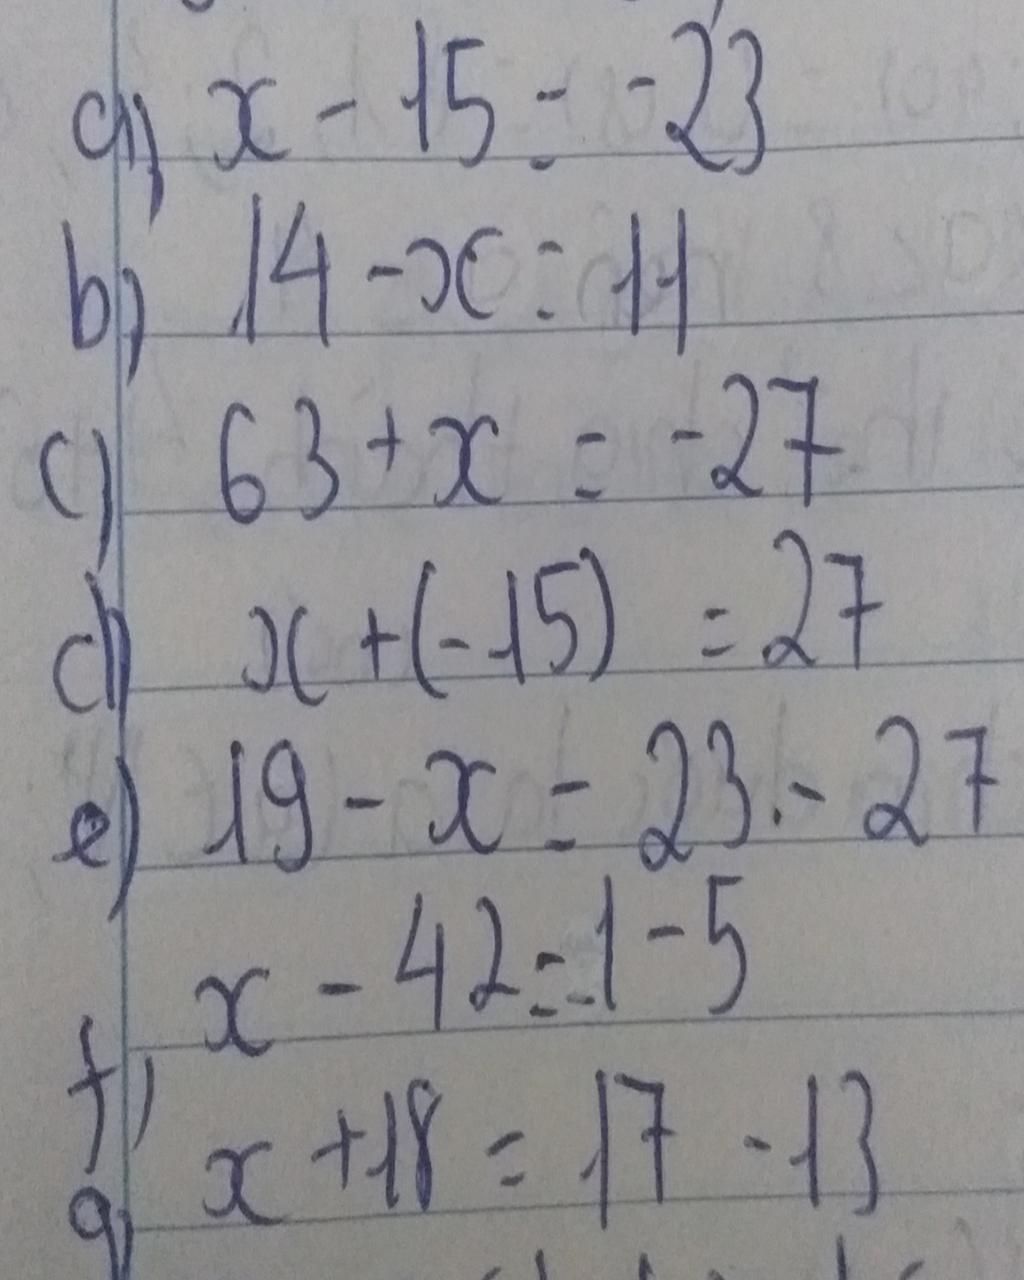 a) x - 15 = -23
b) 14 - x = 11
c) 63 + x = -27
d) x + (-15) = 27
e) 19 - x = 23 - 27
f) x - 42 = 1 - 5
g) x + 18 = 17 - 13